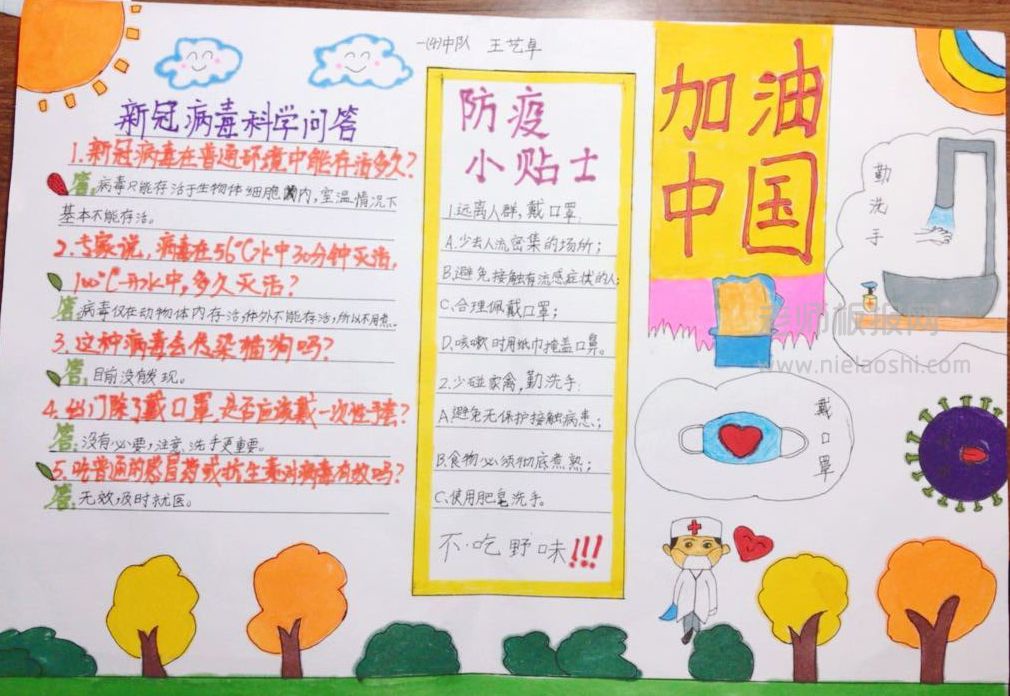 一(4)中队 王艺卓
新冠病毒科学问答
1.新冠病毒在普通环境中能存活多久？
答：病毒只能存活于生物体细胞内，室温情况下
基本不能存活。
2.专家说，病毒在56℃水中30分钟灭活，
100℃开水中，多久灭活？
答：病毒仅在动物体内存活，体外不能存活，所以不用煮。
3.这种病毒会传染猫狗吗？
答：目前没有发现。
4.出门除了戴口罩，是否应该戴一次性手套？
答：没有必要，注意洗手更重要。
5.吃普通的感冒药或抗生素对病毒有效吗？
答：无效，及时就医。
防疫
小贴士
1.远离人群，戴口罩：
A.少去人流密集的场所；
B.避免接触有流感症状的人；
C.合理佩戴口罩；
D.咳嗽时用纸巾掩盖口鼻。
2.少碰家禽，勤洗手：
A.避免无保护接触病患；
B.食物必须彻底煮熟；
C.使用肥皂洗手。
不吃野味!!!
加油
中国
勤洗手
戴口罩
老师板报网
www.nielaoshi.com